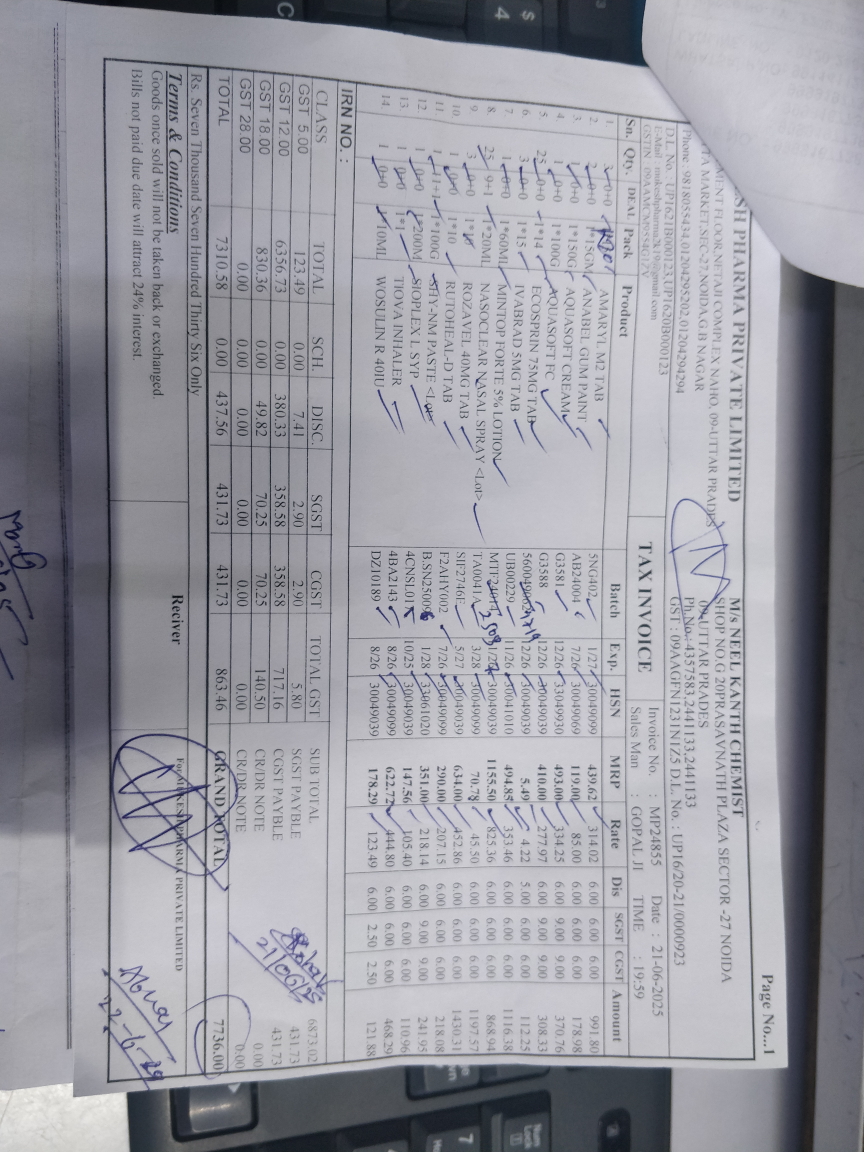 SH PHARMA PRIVATE LIMITED
MENT FLOOR,NETAJI COMPLEX NAHO, 09-UTTAR PRADES
TA MARKET,SEC-27,NOIDA,G.B NAGAR
Phone : 9818055434,01204295202,01204294294
D.L. No. : UP1621B000123,UP1620B000123
E-Mail : mukeshpharma2k19@gmail.com
Page No...1
M/s NEEL KANTH CHEMIST
SHOP NO.G 20PRASAVNATH PLAZA SECTOR -27 NOIDA
09-UTTAR PRADES
Ph.No.: 4357583,2441133,2441133
GST : 09AAGFN1231N1Z5 D.L. No. : UP16/20-21/0000923
TAX INVOICE
Invoice No. : MP24855 Date : 21-06-2025
Sales Man : GOPAL JI TIME : 19:59
Sn. Qty. DEAL Pack Product Batch Exp. HSN MRP Rate Dis SGST CGST Amount
1. 3 0+0 AMARYL M2 TAB 5NG402 1/27 30049099 439.62 314.02 6.00 6.00 6.00 991.80
2. 2 0+0 1*15GM ANABEL GUM PAINT AB24004 7/26 30049069 119.00 85.00 6.00 6.00 6.00 178.98
3. 1 0+0 1*150G AQUASOFT CREAM G3581 12/26 33049930 493.00 334.25 6.00 9.00 9.00 370.76
4. 1 0+0 1*100G AQUASOFT FC G3588 12/26 30049039 410.00 277.97 6.00 9.00 9.00 308.33
5. 25 0+0 1*14 ECOSPRIN 75MG TAB 2/26 30049039 5.49 4.22 5.00 6.00 6.00 112.25
6. 3 0+0 1*15 IVABRAD 5MG TAB UB00229 11/26 30041010 494.85 353.46 6.00 6.00 6.00 1116.38
7. 1 0+0 1*60ML MINTOP FORTE 5% LOTION 30049039 1155.50 825.36 6.00 6.00 6.00 868.94
8. 25 9+1 1*20ML NASOCLEAR NASAL SPRAY <Loi> TA0041A 3/28 30049099 70.78 45.50 6.00 6.00 6.00 1197.57
9. 3 0+0 ROZAVEL 40MG TAB SIF2746E 5/27 30049039 634.00 452.86 6.00 6.00 6.00 1430.31
10. 1 0+0 1*10 RUTOHEAL-D TAB F2AHY002 7/26 30049099 290.00 207.15 6.00 6.00 6.00 218.08
11. 1 11+1 1*100G SHY-NM PASTE <Loi> 1/28 33061020 351.00 218.14 6.00 9.00 9.00 241.95
12. 1 0+0 1*200M SIOPLEX L SYP 10/25 30049039 147.56 105.40 6.00 6.00 6.00 110.96
13. 1 0+0 1*1 TIOVA INHALER 4BA2143 8/26 30049099 622.72 444.80 6.00 6.00 6.00 468.29
14. 1 0+0 10ML WOSULIN R 40IU DZ10189 8/26 30049039 178.29 123.49 6.00 2.50 2.50 121.88
IRN NO. :
CLASS TOTAL SCH. DISC. SGST CGST TOTAL GST
GST 5.00 123.49 0.00 7.41 2.90 2.90 5.80
GST 12.00 6356.73 0.00 380.33 358.58 358.58 717.16
GST 18.00 830.36 0.00 49.82 70.25 70.25 140.50
GST 28.00 0.00 0.00 0.00 0.00 0.00 0.00
TOTAL 7310.58 0.00 437.56 431.73 431.73 863.46
SUB TOTAL 6873.02
SGST PAYBLE 431.73
CGST PAYBLE 431.73
CR/DR NOTE 0.00
CR/DR NOTE 0.00
GRAND TOTAL 7736.00
21/06/25
Rs. Seven Thousand Seven Hundred Thirty Six Only
Terms & Conditions
Goods once sold will not be taken back or exchanged.
Bills not paid due date will attract 24% interest.
Reciver
For MUKESH PHARMA PRIVATE LIMITED